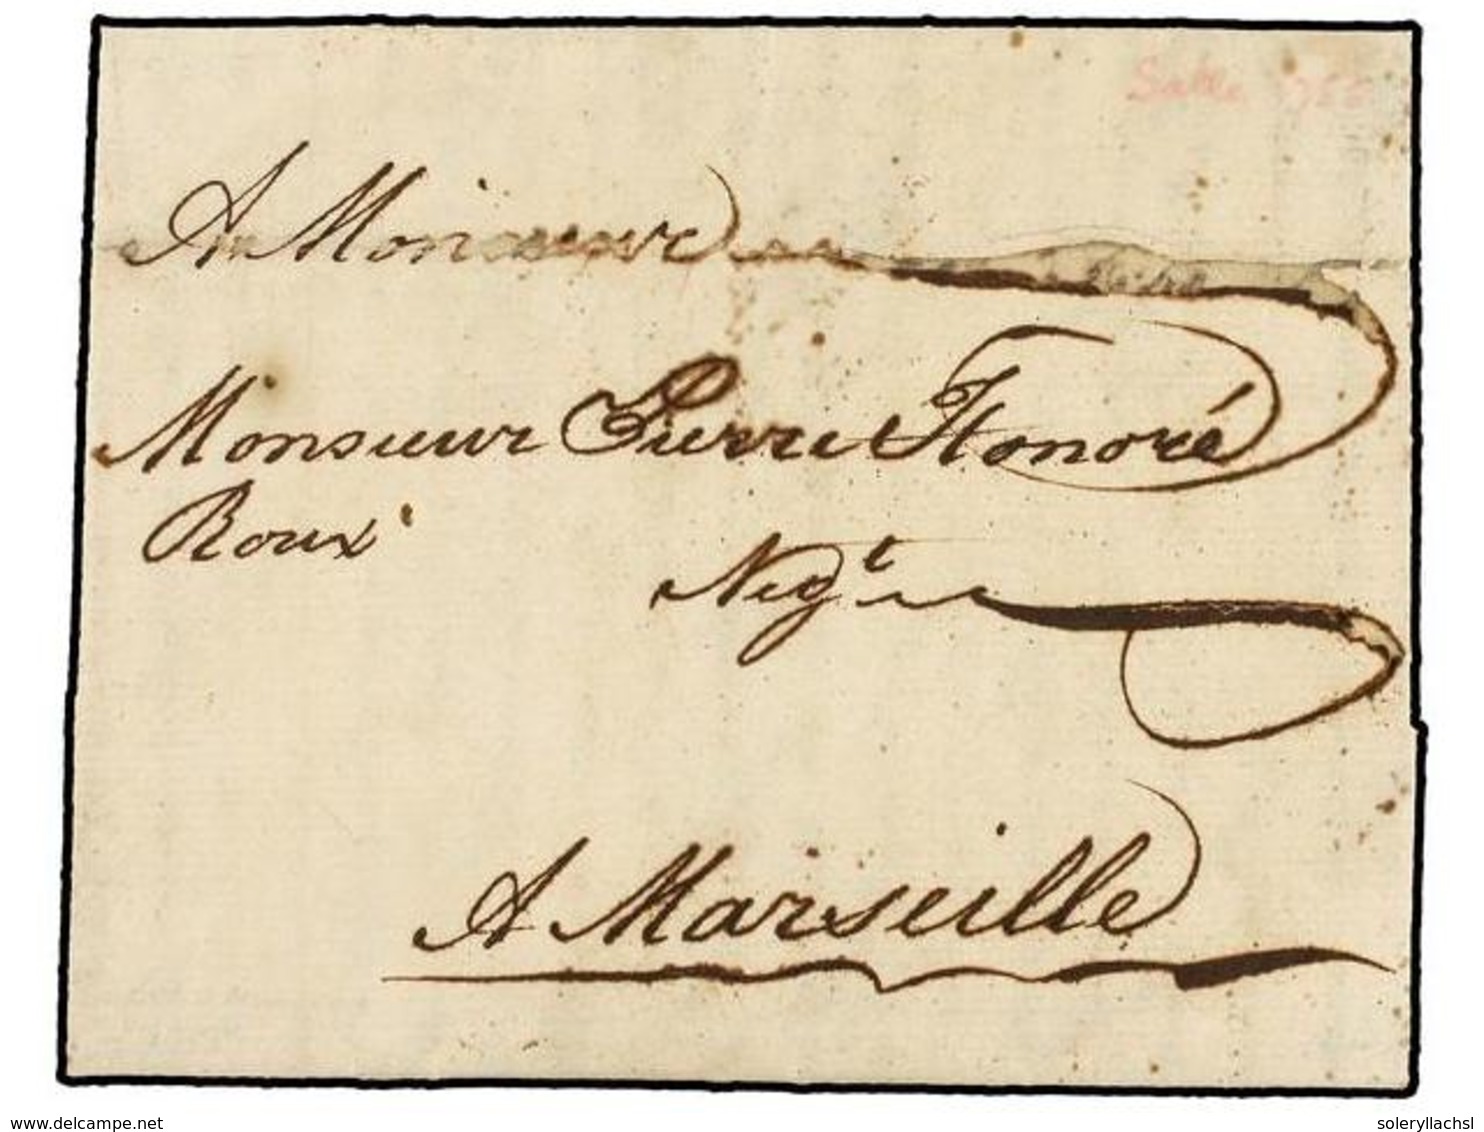 Salle 1755
A Monsieur
Monsieur Pierre Honoré
Roux
Negt
A Marseille
delcampe.net
soleryllachsl